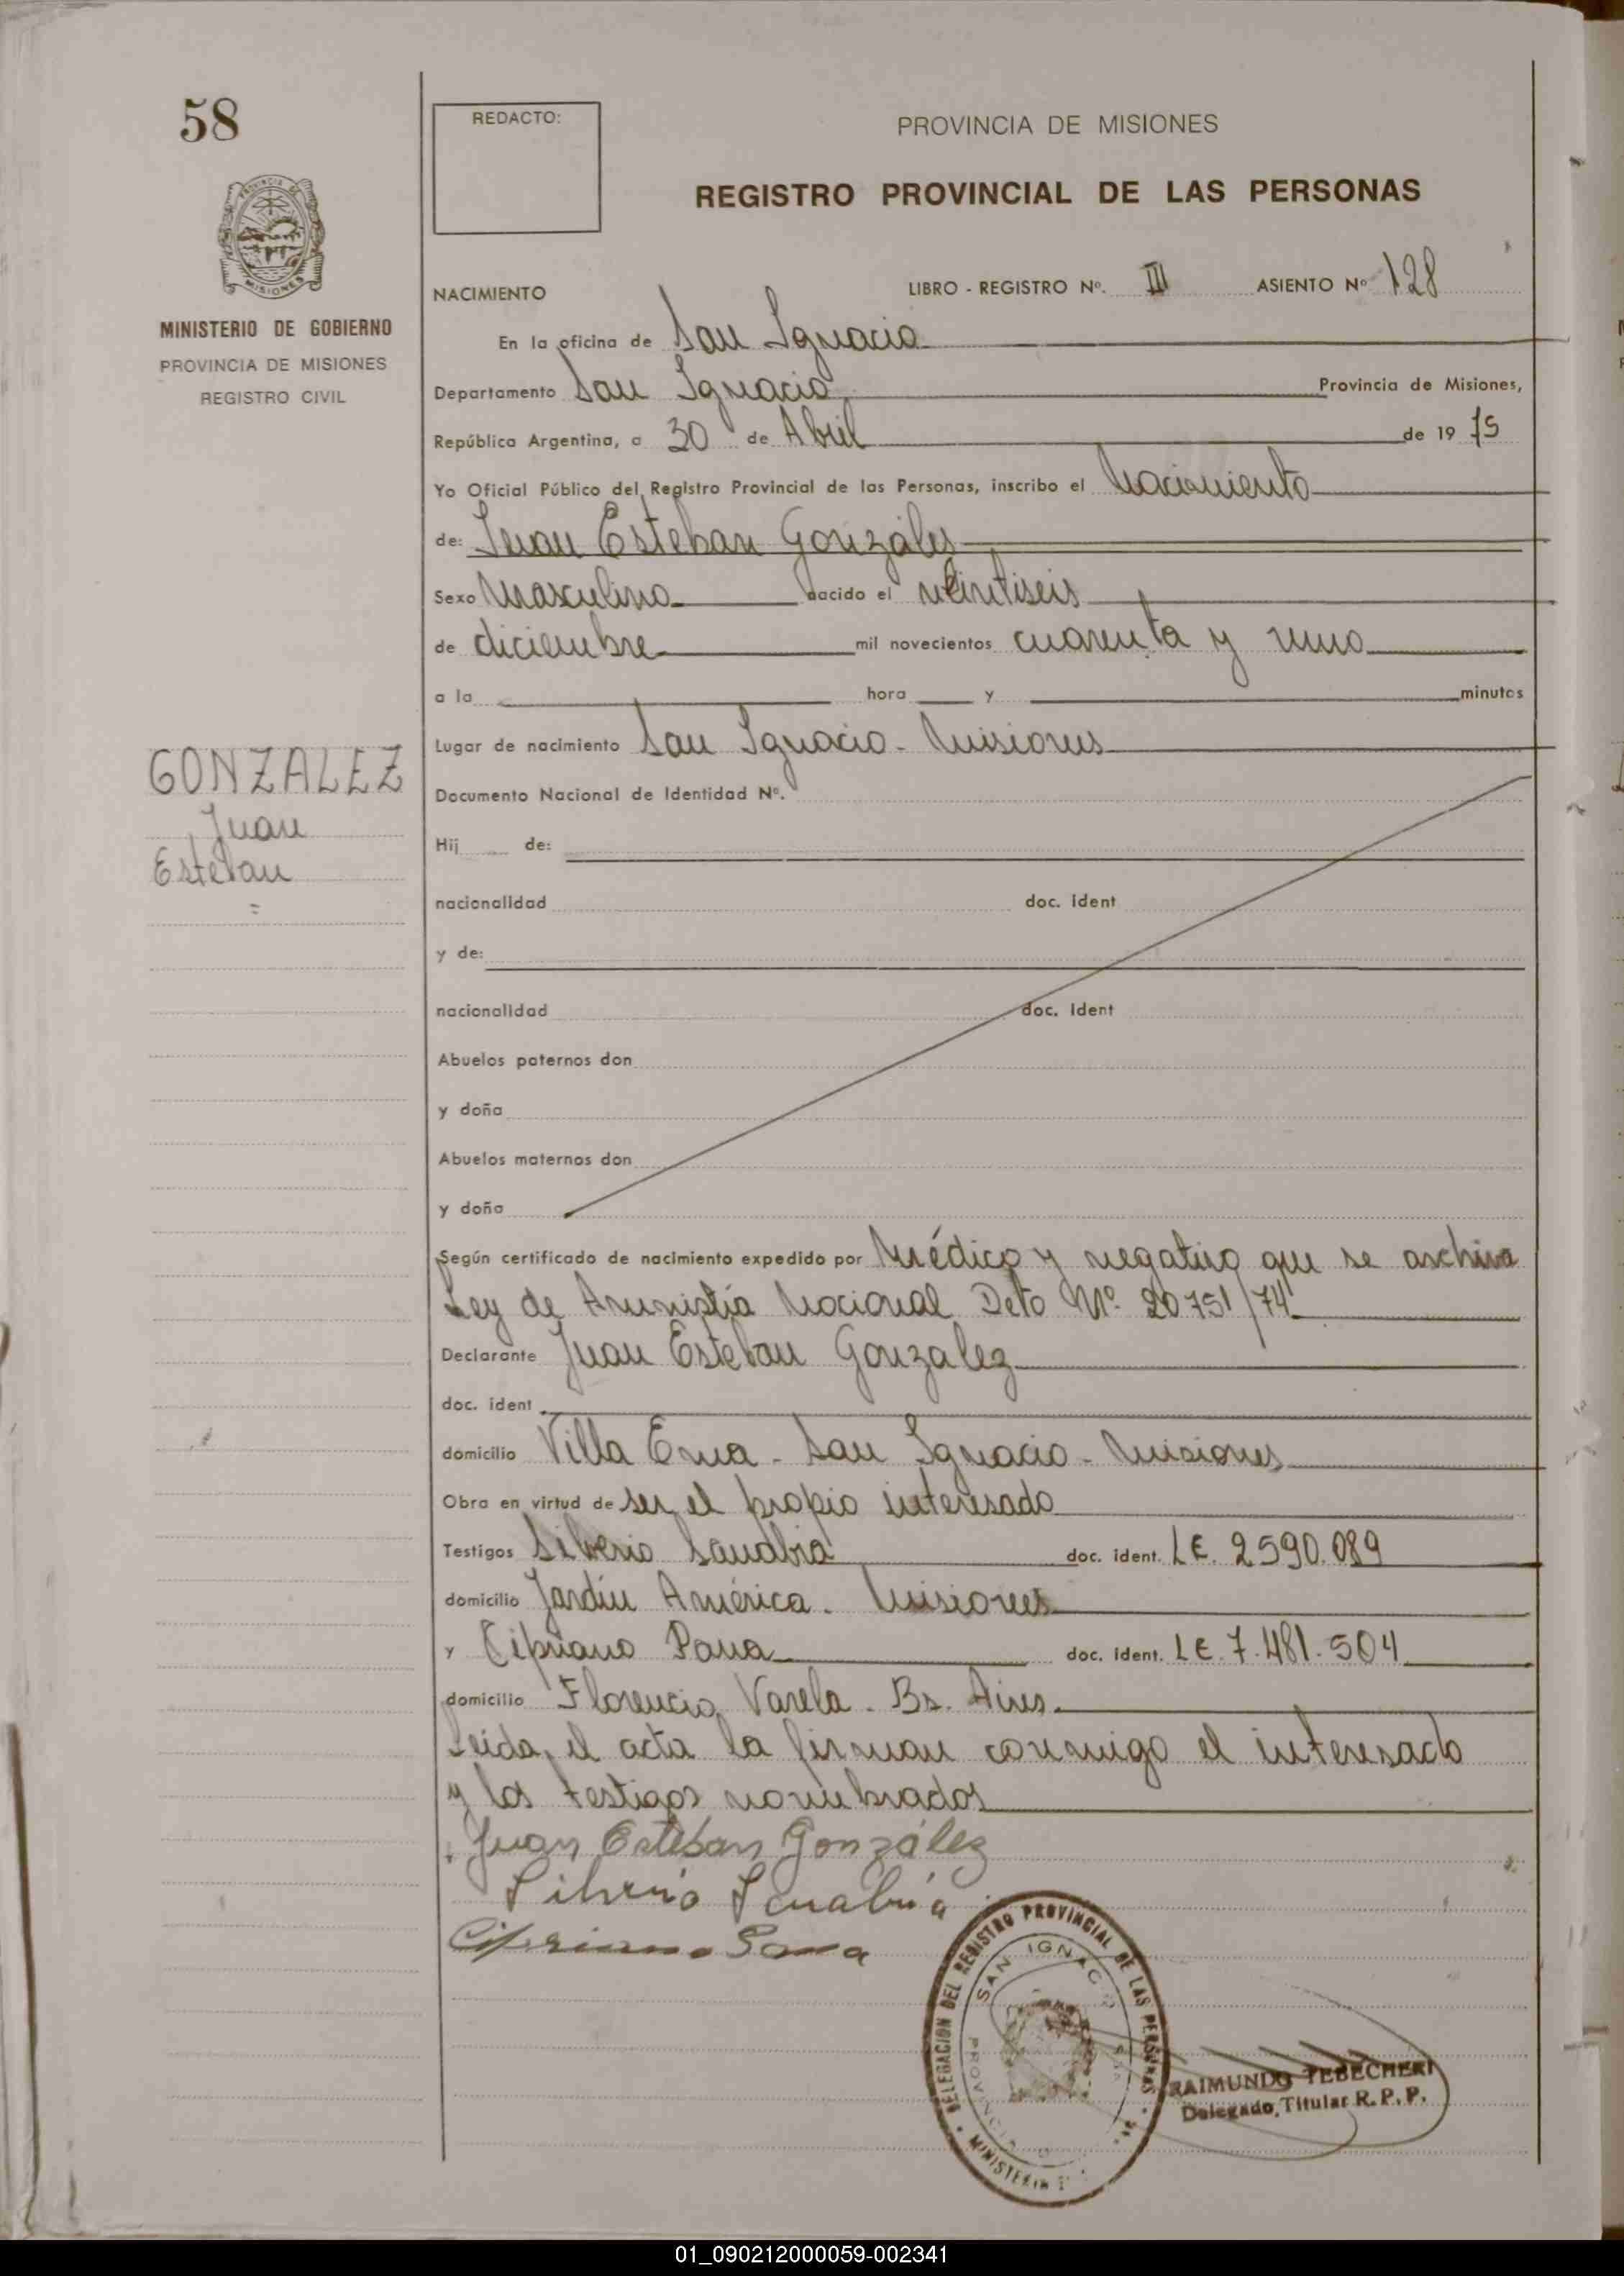 58
REDACTO:
PROVINCIA DE MISIONES
REGISTRO PROVINCIAL DE LAS PERSONAS
MISIONES
MINISTERIO DE GOBIERNO
PROVINCIA DE MISIONES
REGISTRO CIVIL
NACIMIENTO LIBRO - REGISTRO Nº. III ASIENTO Nº 128
En la oficina de San Ignacio
Departamento San Ignacio Provincia de Misiones,
República Argentina, a 30 de Abril de 19 75
Yo Oficial Público del Registro Provincial de las Personas, inscribo el Nacimiento
de: Juan Esteban González
Sexo Masculino nacido el veintiseis
de diciembre mil novecientos cuarenta y uno
a la hora y minutos
Lugar de nacimiento San Ignacio - Misiones
GONZALEZ
Juan
Esteban
=
Documento Nacional de Identidad Nº.
Hij de:
nacionalidad doc. ident
y de:
nacionalidad doc. ident
Abuelos paternos don
y doña
Abuelos maternos don
y doña
Según certificado de nacimiento expedido por Médico y negativo que se archiva
Ley de Amnistía Nacional Deto Nº 20751/74
Declarante Juan Esteban Gonzalez
doc. ident
domicilio Villa Ema - San Ignacio - Misiones
Obra en virtud de ser el propio interesado
Testigos Silverio Sanabria doc. ident. LE. 2590.089
domicilio Jardín América. Misiones
y Cipriano Pana doc. ident. LE. 7.481.504
domicilio Florencio Varela. Bs. Aires.
Leida el acta la firman conmigo el interesado
y los testigos nombrados
Juan Esteban González
Silverio Sanabria
Cipriano
DELEGACION DEL REGISTRO PROVINCIAL DE LAS PERSONAS
SAN IGNACIO
RAIMUNDO TEBECHERI
Delegado Titular R. P. P.
01_090212000059-002341